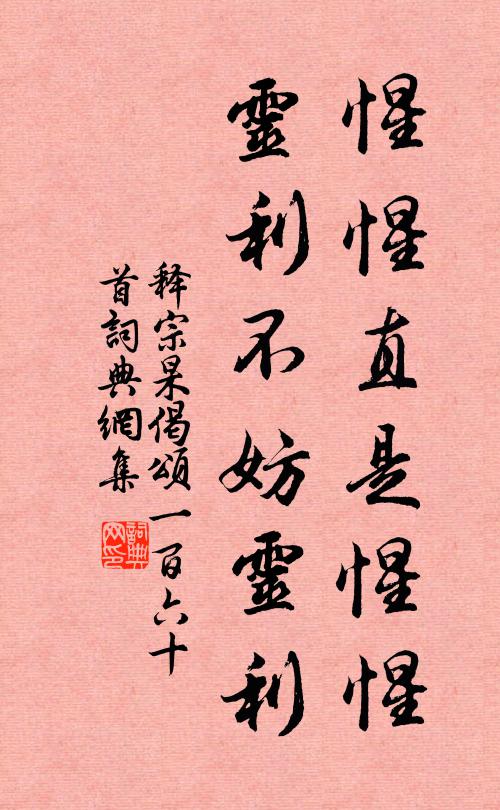 惺惺直是惺惺
靈利不妨靈利
释宗杲偈頌一百六十
首詞典網集
詞典網印